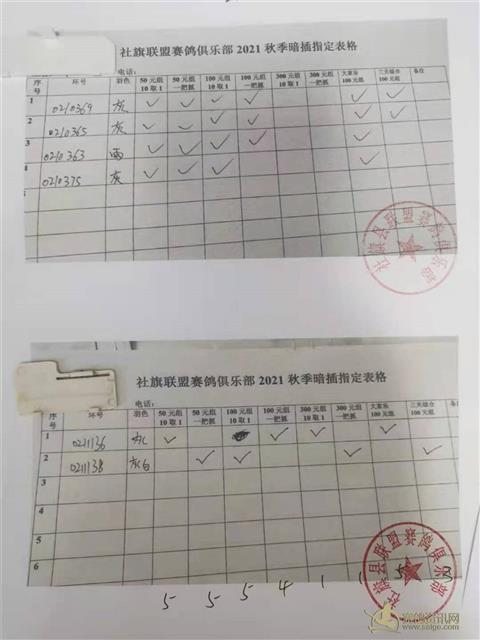 社旗联盟赛鸽俱乐部 2021 秋季暗插指定表格
电话：
序号 环号 羽色 50 元组 10 取 1 50 元组 一把抓 100 元组 10 取 1 100 元组 一把抓 300 元组 10 取 1 300 元组 一把抓 大家乐 100 元组 三关综合 100 元组 备注
1 0210369 灰 ✓ ✓ ✓ ✓ ✓ ✓
2 0210365 灰 ✓ ✓ ✓ ✓ ✓ ✓
3 0210363 雨 ✓ ✓ ✓ ✓ ✓
4 0210375 灰 ✓ ✓ ✓
社旗县联盟赛鸽俱乐部
社旗联盟赛鸽俱乐部 2021 秋季暗插指定表格
电话：
序号 环号 羽色 50 元组 10 取 1 50 元组 一把抓 100 元组 10 取 1 100 元组 一把抓 300 元组 10 取 1 300 元组 一把抓 大家乐 100 元组 三关综合 100 元组 备注
1 0211136 ✓ ✓ ✓ ✓
2 0211138 灰白 ✓ ✓ ✓ ✓
3
4
5
6
社旗县联盟赛鸽俱乐部
5 5 5 4 1 1
赛鸽资讯网
www.saige.com